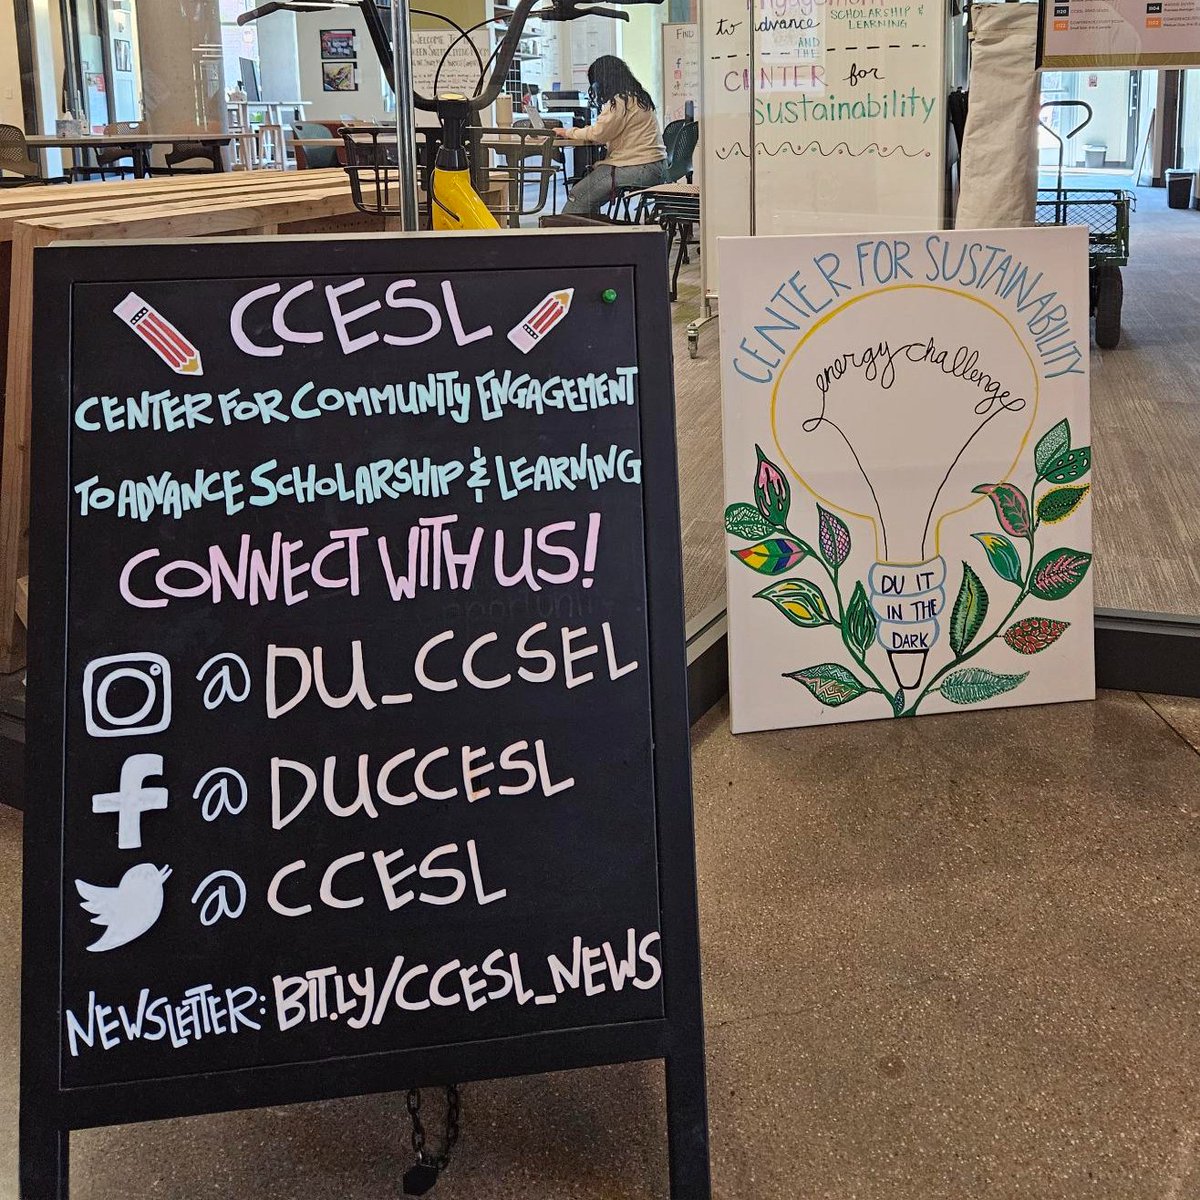 CCESL
CENTER FOR COMMUNITY ENGAGEMENT
TO ADVANCE SCHOLARSHIP & LEARNING
CONNECT WITH US!
@DU_CCSEL
@DUCCESL
@CCESL
NEWSLETTER: BIT.LY/CCESL_NEWS
CENTER FOR SUSTAINABILITY
energy challenge
DU IT
IN THE
DARK
to advance SCHOLARSHIP &
LEARNING
AND
THE
CENTER for
Sustainability
FIND
WELCOME TO